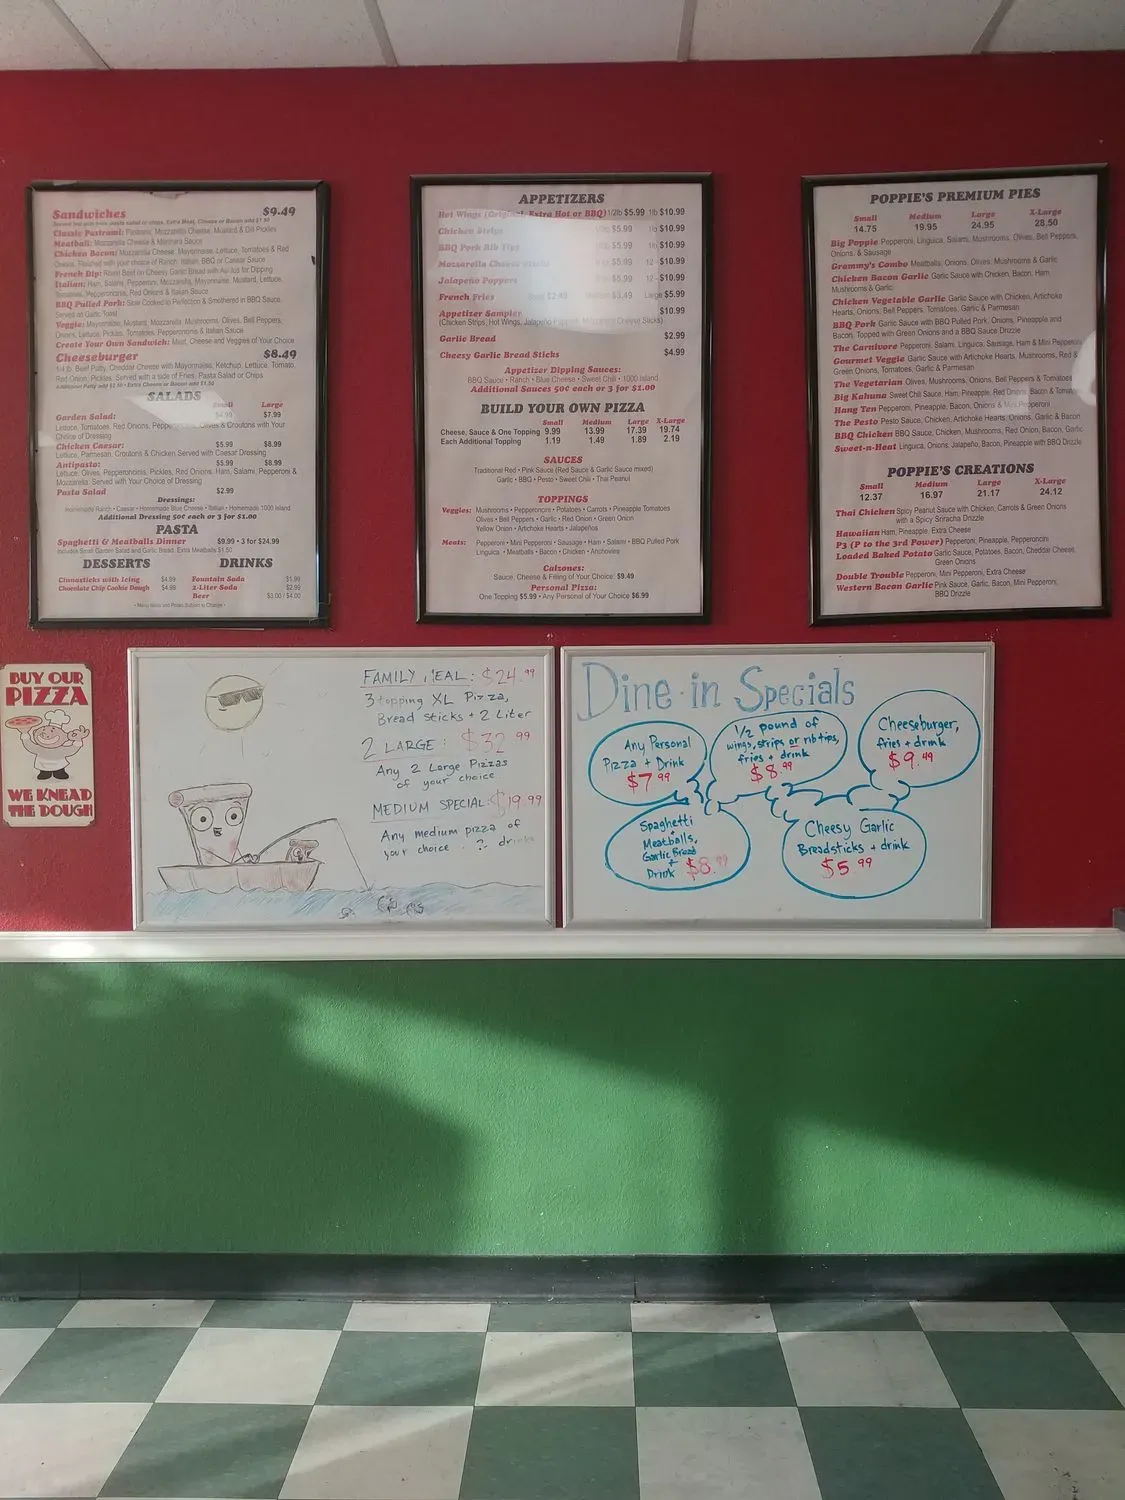 Sandwiches $9.49
Classic Pastrami: Pastrami, Mozzarella Cheese, Mustard & Dill Pickles
Meatball: Mozzarella Cheese & Marinara Sauce
Chicken Bacon: Mozzarella Cheese, Mayonnaise, Lettuce, Tomatoes & Red
Onions. Finished with your choice of Ranch, Italian, BBQ or Caesar Sauce
French Dip: Roast Beef on Cheesy Garlic Bread with Au Jus for Dipping
Italian: Ham, Salami, Pepperoni, Mozzarella, Mayonnaise, Mustard, Lettuce,
Tomatoes, Pepperoncinis, Red Onions & Italian Sauce
BBQ Pulled Pork: Slow Cooked to Perfection & Smothered in BBQ Sauce,
Served on Garlic Toast
Veggie: Mayonnaise, Mustard, Mozzarella, Mushrooms, Olives, Bell Peppers,
Onions, Lettuce, Pickles, Tomatoes, Pepperoncinis & Italian Sauce
Create Your Own Sandwich: Meat, Cheese and Veggies of Your Choice
Cheeseburger $8.49
1/4 lb. Beef Patty, Cheddar Cheese with Mayonnaise, Ketchup, Lettuce, Tomato,
Red Onion, Pickles. Served with a side of Fries, Pasta Salad or Chips
SALADS
Small Large
Garden Salad: $4.99 $7.99
Lettuce, Tomatoes, Red Onions, Olives & Croutons with Your
Choice of Dressing
Chicken Caesar: $5.99 $8.99
Lettuce, Parmesan, Croutons & Chicken Served with Caesar Dressing
Antipasto: $5.99 $8.99
Lettuce, Olives, Pepperoncinis, Pickles, Red Onions, Ham, Salami, Pepperoni &
Mozzarella. Served with Your Choice of Dressing
Pasta Salad $2.99
Dressings:
Homemade Ranch • Caesar • Homemade Blue Cheese • Italian • Homemade 1000 Island
Additional Dressing 50¢ each or 3 for $1.00
PASTA
Spaghetti & Meatballs Dinner $9.99 • 3 for $24.99
Includes Small Garden Salad and Garlic Bread. Extra Meatballs $1.50
DESSERTS DRINKS
Cinnasticks with Icing $4.99 Fountain Soda $1.99
Chocolate Chip Cookie Dough $4.99 2-Liter Soda $2.99
Beer $3.00 / $4.00
APPETIZERS
Hot Wings (Original, Extra Hot or BBQ) 1/2lb $5.99 1lb $10.99
Chicken Strips $5.99 1lb $10.99
BBQ Pork Rib Tips $5.99 1lb $10.99
Mozzarella Cheese Sticks $5.99 12 - $10.99
Jalapeño Poppers $5.99 12 - $10.99
French Fries $2.49 $3.49 Large $5.99
Appetizer Sampler $10.99
(Chicken Strips, Hot Wings, Jalapeño Poppers, Mozzarella Cheese Sticks)
Garlic Bread $2.99
Cheesy Garlic Bread Sticks $4.99
Appetizer Dipping Sauces:
BBQ Sauce • Ranch • Blue Cheese • Sweet Chili • 1000 Island
Additional Sauces 50¢ each or 3 for $1.00
BUILD YOUR OWN PIZZA
Small Medium Large X-Large
Cheese, Sauce & One Topping 9.99 13.99 17.39 19.74
Each Additional Topping 1.19 1.49 1.89 2.19
SAUCES
Traditional Red • Pink Sauce (Red Sauce & Garlic Sauce mixed)
Garlic • BBQ • Pesto • Sweet Chili • Thai Peanut
TOPPINGS
Veggies: Mushrooms • Pepperoncinis • Potatoes • Carrots • Pineapple Tomatoes
Olives • Bell Peppers • Garlic • Red Onion • Green Onion
Yellow Onion • Artichoke Hearts • Jalapeños
Meats: Pepperoni • Mini Pepperoni • Sausage • Ham • Salami • BBQ Pulled Pork
Linguica • Meatballs • Bacon • Chicken • Anchovies
Calzones:
Sauce, Cheese & Filling of Your Choice: $9.49
Personal Pizza:
One Topping $5.99 • Any Personal of Your Choice $6.99
POPPIE'S PREMIUM PIES
Small Medium Large X-Large
14.75 19.95 24.95 28.50
Big Poppie Pepperoni, Linguica, Salami, Mushrooms, Olives, Bell Peppers,
Onions, & Sausage
Grammy's Combo Meatballs, Onions, Olives, Mushrooms & Garlic
Chicken Bacon Garlic Garlic Sauce with Chicken, Bacon, Ham,
Mushrooms & Garlic
Chicken Vegetable Garlic Garlic Sauce with Chicken, Artichoke
Hearts, Onions, Bell Peppers, Tomatoes, Garlic & Parmesan
BBQ Pork Garlic Sauce with BBQ Pulled Pork, Onions, Pineapple and
Bacon. Topped with Green Onions and a BBQ Sauce Drizzle
The Carnivore Pepperoni, Salami, Linguica, Sausage, Ham & Mini Pepperoni
Gourmet Veggie Garlic Sauce with Artichoke Hearts, Mushrooms, Red &
Green Onions, Tomatoes, Garlic & Parmesan
The Vegetarian Olives, Mushrooms, Onions, Bell Peppers & Tomatoes
Big Kahuna Sweet Chili Sauce, Ham, Pineapple, Red Onions, Bacon & Tomatoes
Hang Ten Pepperoni, Pineapple, Bacon, Onions & Mini Pepperoni
The Pesto Pesto Sauce, Chicken, Artichoke Hearts, Onions, Garlic & Bacon
BBQ Chicken BBQ Sauce, Chicken, Mushrooms, Red Onion, Bacon, Garlic
Sweet-n-Heat Linguica, Onions, Jalapeño, Bacon, Pineapple with BBQ Drizzle
POPPIE'S CREATIONS
Small Medium Large X-Large
12.37 16.97 21.17 24.12
Thai Chicken Spicy Peanut Sauce with Chicken, Carrots & Green Onions
with a Spicy Sriracha Drizzle
Hawaiian Ham, Pineapple, Extra Cheese
P3 (P to the 3rd Power) Pepperoni, Pineapple, Pepperoncini
Loaded Baked Potato Garlic Sauce, Potatoes, Bacon, Cheddar Cheese,
Green Onions
Double Trouble Pepperoni, Mini Pepperoni, Extra Cheese
Western Bacon Garlic Pink Sauce, Garlic, Bacon, Mini Pepperoni,
BBQ Drizzle
BUY OUR
PIZZA
WE KNEAD
THE DOUGH
FAMILY MEAL: $24.99
3 topping XL Pizza,
Bread sticks + 2 Liter
2 LARGE: $32.99
Any 2 Large Pizzas
of your choice
MEDIUM SPECIAL: $19.99
Any medium pizza of
your choice 2 drinks
Dine-in Specials
Any Personal
Pizza + Drink
$7.99
1/2 pound of
wings, strips or rib tips,
fries + drink
$8.99
Cheeseburger,
fries + drink
$9.49
Spaghetti
+
Meatballs,
Garlic Bread
+
Drink $8.99
Cheesy Garlic
Breadsticks + drink
$5.99